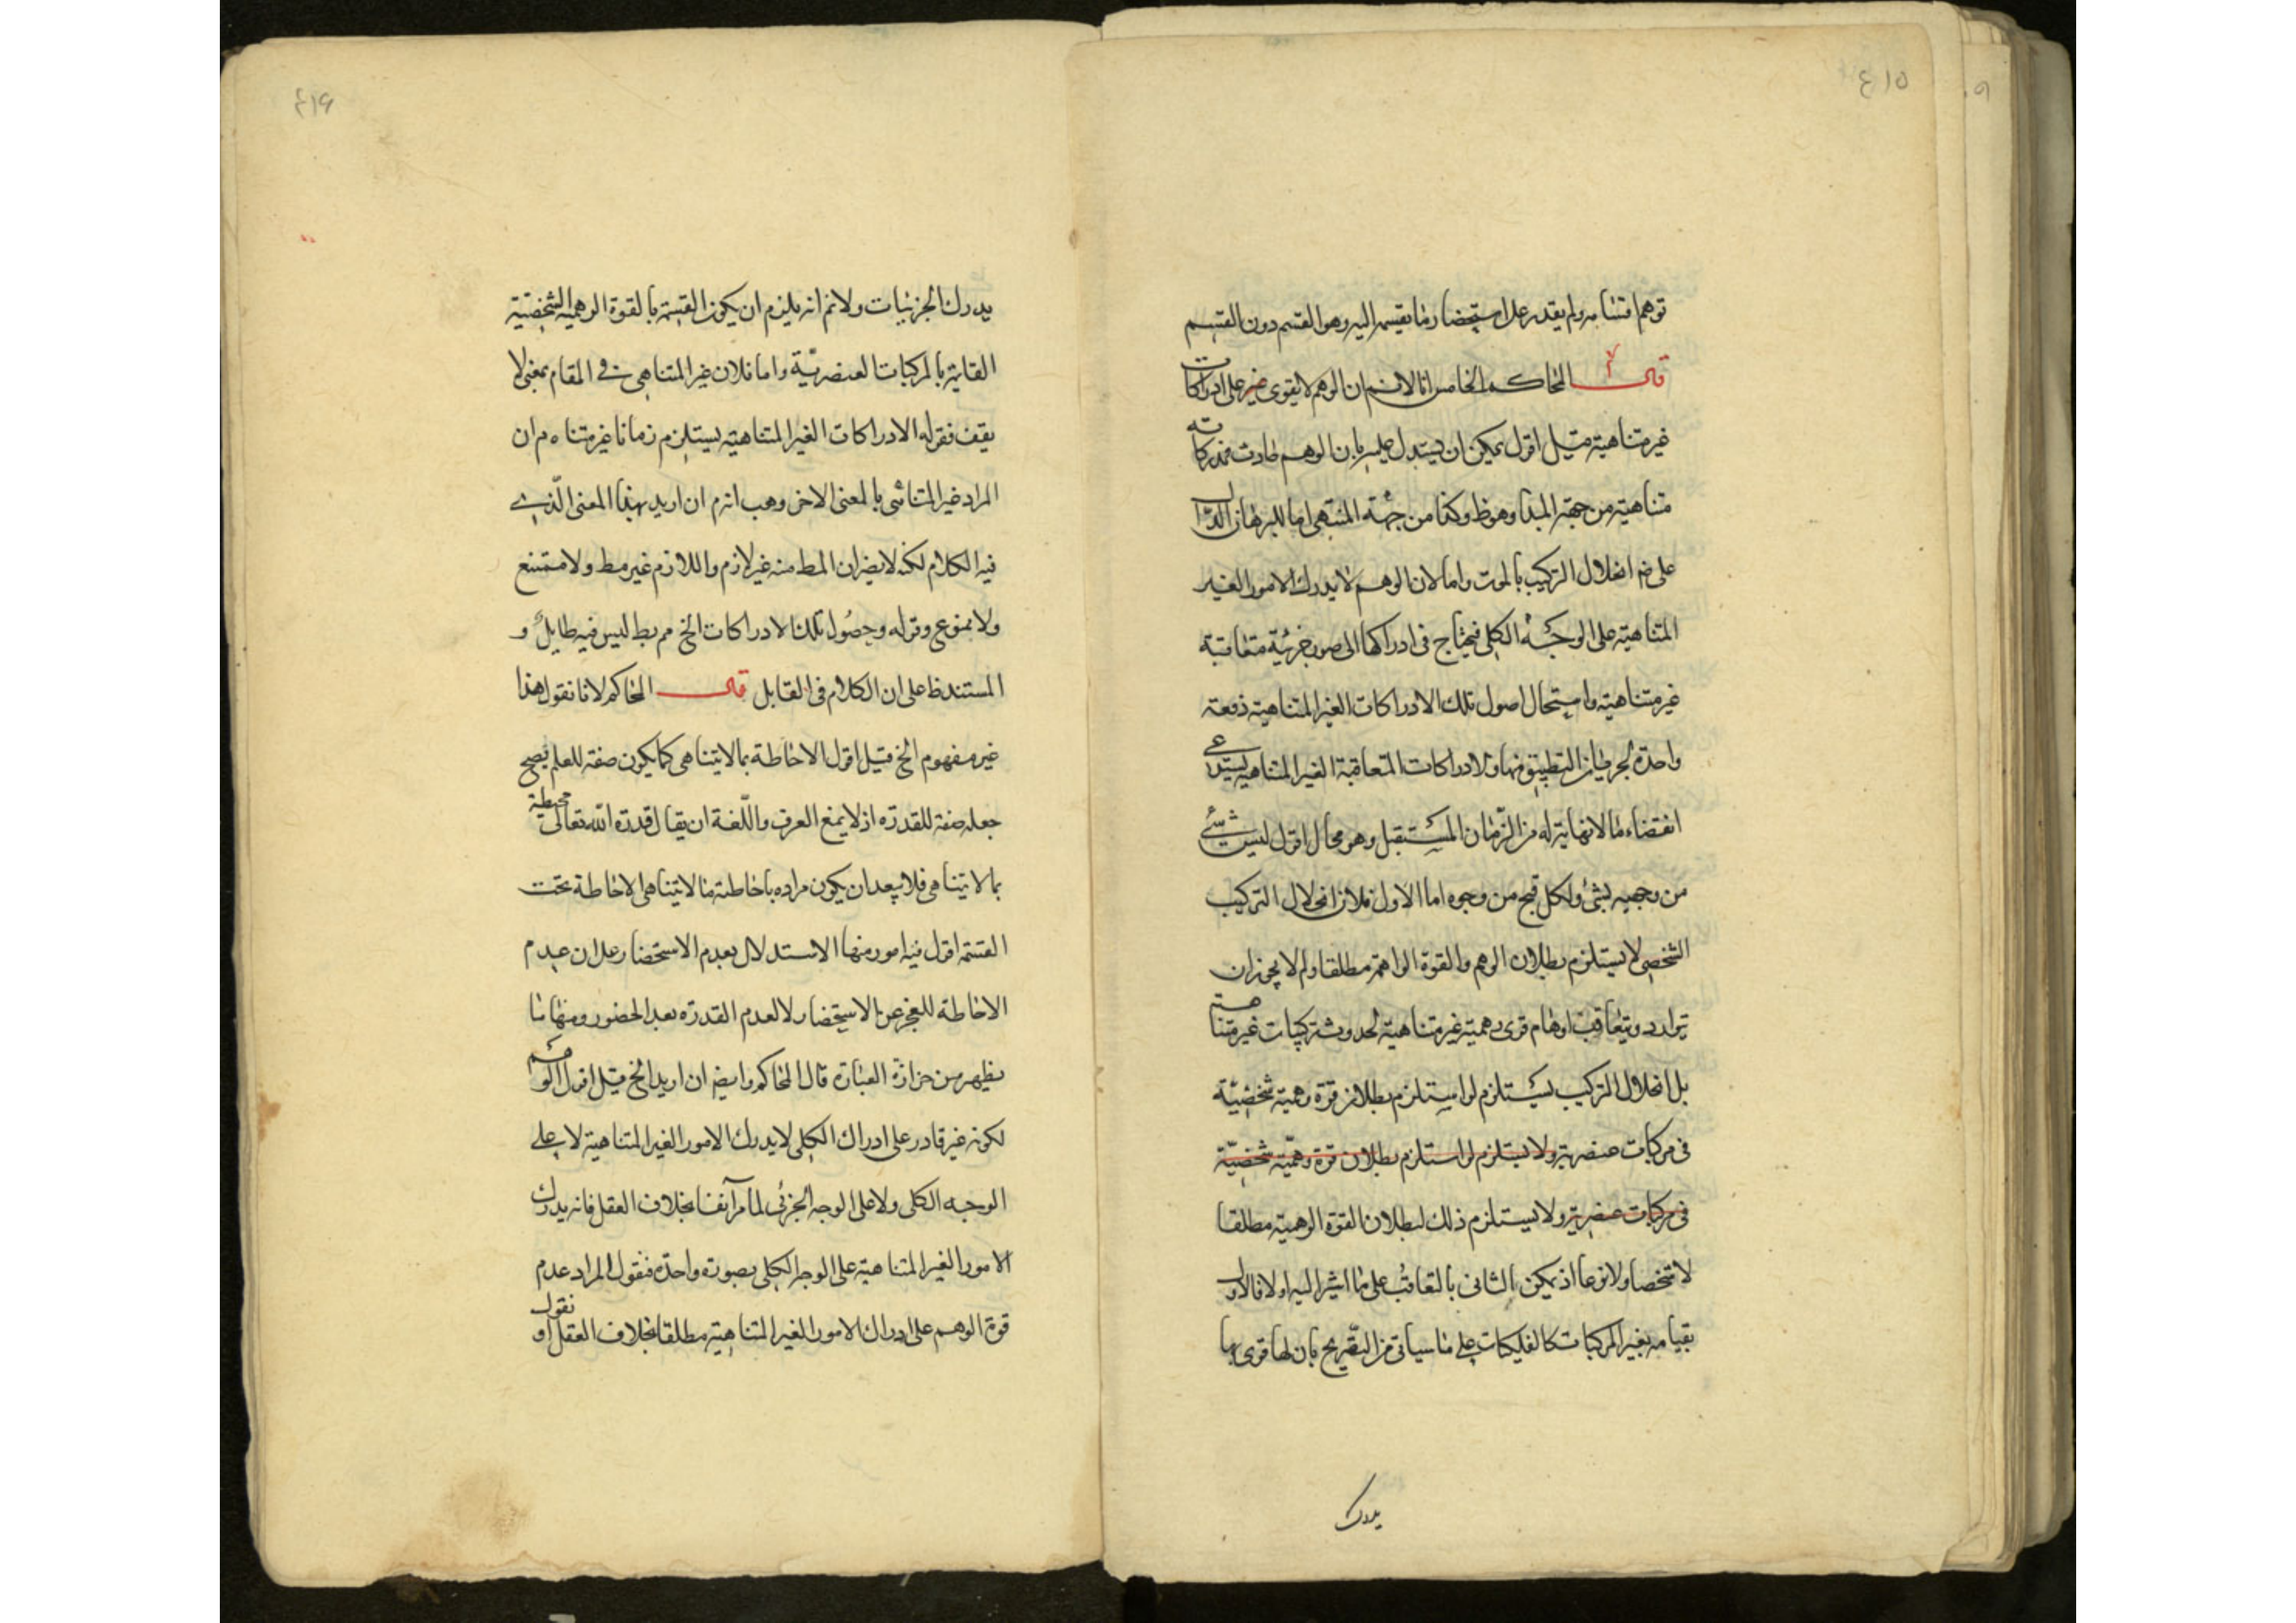 ٤١٥
توهم اقسامه ولم يقدر على استحضار ما يقسمه اليه وهو القسم دون القسم
قال المحاكم الخامس انا لانم ان الوهم لا يقوى غير على ادراكات
غير متناهية قيل اقول يمكن ان يستدل عليه بان الوهم حادث فمدركاته
متناهية من جهة المبدا وهو ظ وكذا من جهة المنتهى اما للبرهان الدال
على انحلال التركيب بالموت واما لان الوهم لا يدرك الامور الغير
المتناهية على الوجه الكلى فيحتاج فى ادراكها الى صور جزئية متعاقبة
غير متناهية واستحال حصول تلك الادراكات الغير المتناهية دفعة
واحدة لجريان التطبيق فيها والادراكات المتعاقبة الغير المتناهية يستدعى
انقضاء ما لا نهاية له من الزمان المستقبل وهو محال اقول ليس شئ
من وجهيه بشئ ولكل قبح من وجوه اما الاول فلان انحلال التركيب
الشخصى لا يستلزم بطلان الوهم والقوة الواهمة مطلقا ولم لا يجوز ان
يتوارد ويتعاقب اوهام قوى وهمية غير متناهية لحدوث تركيبات غير متناهية
بل انحلال التركيب يستلزم لو استلزم بطلان قوة وهمية شخصية
فى مركبات عنصرية ولا يستلزم لو استلزم بطلان قوة وهمية شخصية
فى مركبات عنصرية ولا يستلزم ذلك لبطلان القوة الوهمية مطلقا
لا شخصا ولا نوعا اذ يمكن الثانى بالتعاقب على ما اشير اليه اولا فالاول
بقيامه بغير المركبات كالفلكيات على ما سياتى من التصريح بان لها قوى بها
يدرك
٤١٦
يدرك الجزئيات ولانم انه يلزم ان يكون القسمة بالقوة الوهمية الشخصية
القائمة بالمركبات العنصرية واما فلان غير المتناهى فى المقام بمعنى لا
يقف فقوله الادراكات الغير المتناهية يستلزم زمانا غير متناه م ان
المراد غير المتناهى بالمعنى الاخر وهب انه م ان اريد بهذا المعنى الذى
فيه الكلام لكنه لا يضر ان المط منه غير لازم واللازم غير مط ولا ممتنع
ولا ممنوع وقوله وحصول تلك الادراكات الخ مم بط ليس فيه طايل و
المستند ظ على ان الكلام فى القابل قال المحاكم لانا نقول هذا
غير مفهوم الخ قيل اقول الاحاطة بما لا يتناهى كما يكون صفة للعلم يصح
جعله صفة للقدرة اذ لا يمنع العرف واللغة ان يقال قدرة الله تعالى محيطة
بما لا يتناهى فلا يبعد ان يكون مراده باحاطة ما لا يتناهى الاحاطة تحت
القسمة اقول فيه امور منها الاستدلال بعدم الاستحضار على ان عدم
الاحاطة للعجز عن الاستحضار لا لعدم القدرة بعد الحضور ومنها ما
يظهر من حزازة العبارة قال المحاكم وايضم ان اريد الخ قيل اقول الوهم
لكونه غير قادر على ادراك الكلى لا يدرك الامور الغير المتناهية لا على
الوجه الكلى ولا على الوجه الجزئى لما مر آنفا بخلاف العقل فانه يدرك
الامور الغير المتناهية على الوجه الكلى بصورة واحدة فنقول المراد عدم
قوة الوهم على ادراك الامور الغير المتناهية مطلقا بخلاف العقل او نقول